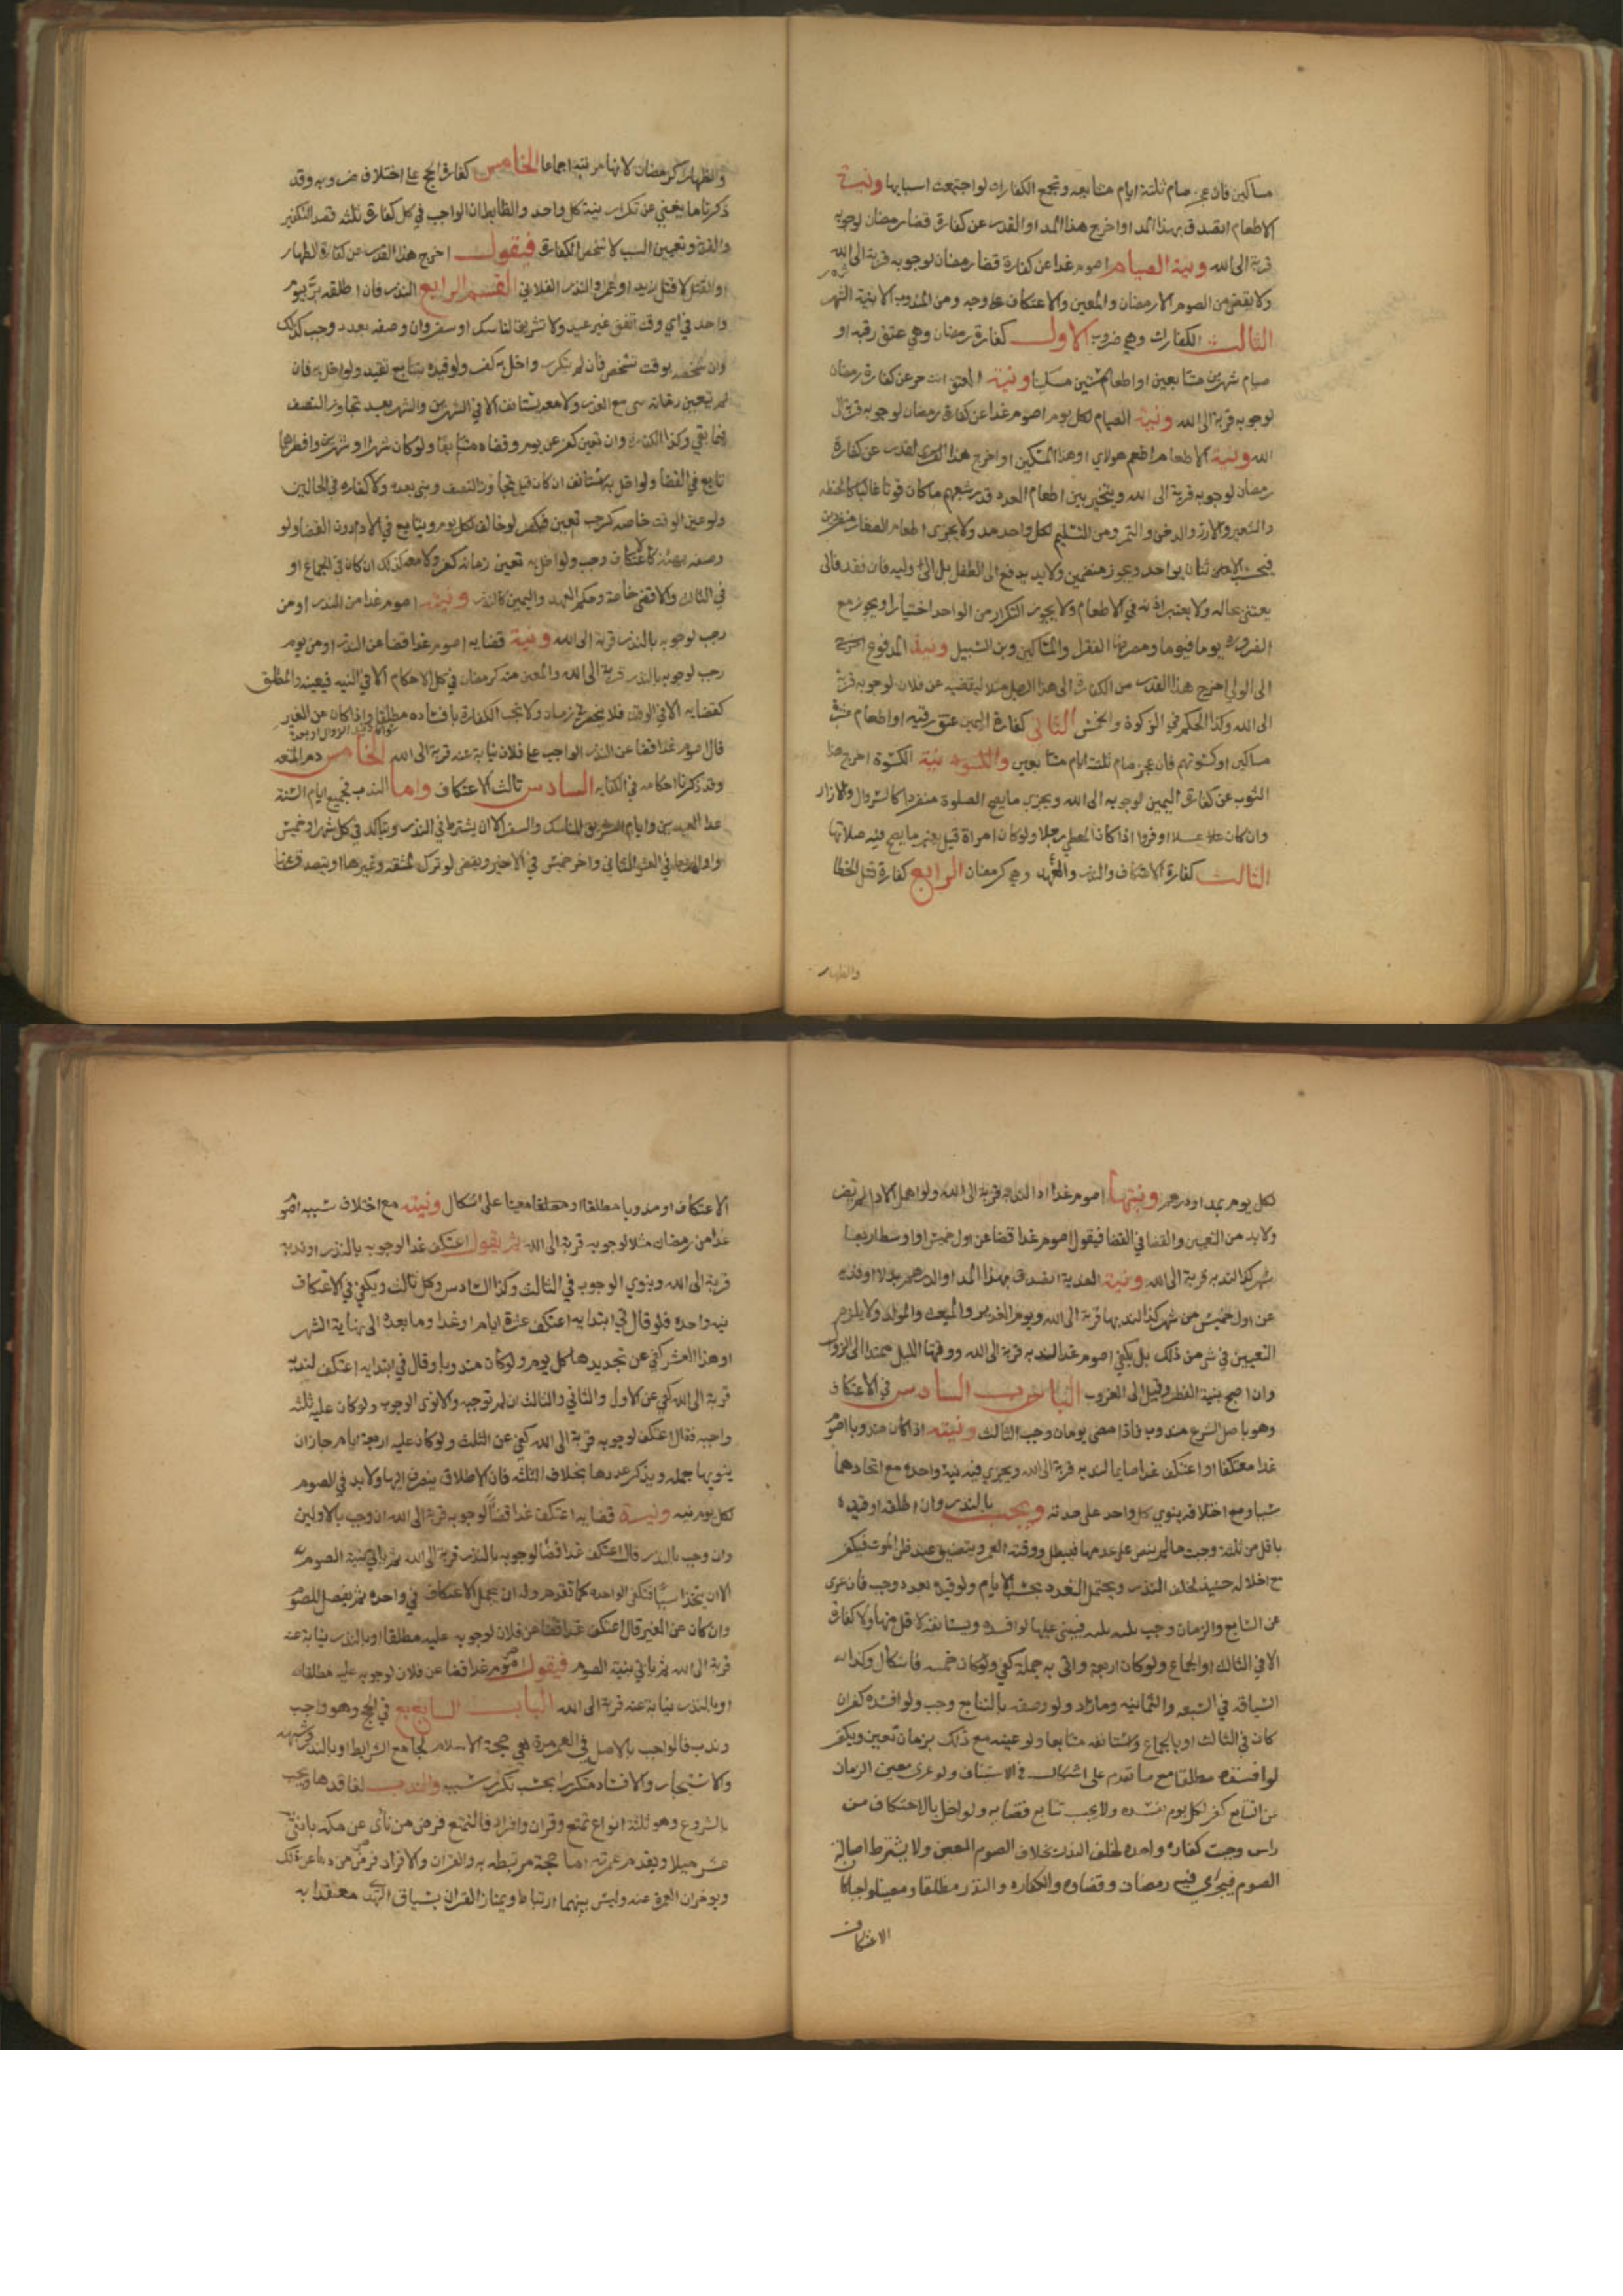 مساكين فان عجز صام ثلثة ايام متتابعه وتجمع الكفارات لو اجتمعت اسبابها ونية
الاطعام اتصدق بهذا المد او اخرج هذا المد او القدر عن كفارة قضا رمضان لوجوبه
قربة الى الله ونية الصيام اصوم غدا عن كفارة قضا رمضان لوجوبه قربة الى الله
ولا يقضى من الصوم الا رمضان والمعين والاعتكاف على وجه ومن المندوب الا بنية الشهر
الثالث الكفارات وهي ضروب الاول كفارة رمضان وهي عتق رقبة او
صيام شهرين متتابعين او اطعام ستين مسكينا ونية العتق انت حر عن كفارة رمضان
لوجوبه قربة الى الله ونية الصيام لكل يوم اصوم غدا عن كفارة رمضان لوجوبه قربة الى
الله ونية الاطعام اطعم هولاي او هذا المسكين او اخرج هذا القدر عن كفارة
رمضان لوجوبه قربة الى الله ويتخير بين اطعام العدد قدر شبعهم ما كان قوتا غالبا كالحنطه
والشعير والارز والدخن والتمر ومن التسليم لكل واحد مد ولا يجزى اطعام الصغار منفردين
فيحتسب الاثنان بواحد ويجوز منضمين ولا يدفع الى الطفل بل الى وليه فان فقد فالى
يعتنى بحاله ولا يعتبر اذنه في الاطعام ولا يجوز التكرار من الواحد اختيارا ويجوز مع
يوما فيوما ومصرفها الفقرا والمساكين وبن السبيل ونية المدفوع
الى الولي اخرج هذا القدر من الكفارة الى هذا الطفل مثلا ليقضيه عن فلان لوجوبه قربة
الى الله وكذا الحكم في الزكوة والخمس الثاني كفارة اليمين عتق رقبه او اطعام عشرة
مساكين او كسوتهم فان عجز صام ثلثة ايام متتابعين والكسوه نية الكسوة اخرج هذا
الثوب عن كفارة اليمين لوجوبه الى الله ويجزي ما يصح الصلوة منفردا كالسروال والازار
وان كان او فروا اذا كان المعطي رجلا ولو كان امراة قيل يعتبر ما يصح فيه صلاتها
الثالث كفارة الاعتكاف والنذر والعهد وهي كرمضان الرابع كفارة قتل الخطا
والظهار
والظهار كرمضان لانها مرتبة اجماعا الخامس كفارة الحج على اختلاف ضروبه وقد
ذكرنا ما يغني عن تكرار بنية كل واحد والظابط ان الواجب في كل كفارة ثلثه قصد التكفير
والقربة وتعيين السبب لا شخص الكفارة فيقول اخرج هذا القدر عن كفارة الظهار
او القتل لا قتل زيد او عمر والنذر الفلاني القسم الرابع النذر فان اطلقه بر بيوم
واحد في اي وقت اتفق غير عيد ولا تشريق لناسك او سفر وان وصفه بعدد وجب كذلك
وان شخصه بوقت تشخص فان لم يتكرر واخل به كفر ولو قيده بتتابع تقيد ولو اخل به فان
لم تعين زمانه بنى مع العذر ولا معه يستانف الا في الشهرين والشهر بعد تجاوز النصف
فيما بقي وكذا الكفارة وان تعين كفر عن يوم وقضاه متتابعا ولو كان شهرا وشهرين وافطرها
تابع في القضا ولو اخل به يستانف ان كان قبل تجاوز النصف وبنى بعده ولا كفاره في الحالين
ولو عين الوقت خاصه كرجب تعين فيكفر لو خالف لكل يوم ويتابع في الادا دون القضا ولو
وصفه بهيئة كالاعتكاف وجب ولو اخل به تعين زمانه كفر ولا معه كذلك ان كان في الجماع او
في الثالث والا قضى خاصة وحكم العهد واليمين كالنذر ونيته اصوم غدا من النذر او من
رجب لوجوبه بالنذر قربة الى الله ونية قضايه اصوم غدا قضا عن النذر او من يوم
رجب لوجوبه بالنذر قربة الى الله والمعين منه كرمضان في كل الاحكام الا في النيه فيعينه والمطلق
كقضايه الا في الوقت فلا ينحصر في زمان ولا تجب الكفارة بافساده مطلقا واذا كان عن الغير
قال اصوم غدا قضا عن النذر الواجب على فلان نيابة عنه قربة الى الله الخامس دم المتعه
وقد ذكرنا احكامه في الكفايه السادس ثالث الاعتكاف واما الندب فجميع ايام السنة
عدا العيدين وايام التشريق للناسك والسفر الا ان يشترط في النذر ويتاكد في كل شهر اول خميس
واول اربعا في العشر الثاني واخر خميس في الاخير ويقضى لو ترك لمشقه وغيرها او يتصدق عنها
لكل يوم بمد او درهم ونيتها اصوم غدا ادا لندبه قربة الى الله ولو اهمل الادا لم يقض
ولا بد من التعيين والقضا في القضا فيقول اصوم غدا قضا عن اول خميس او اوسط اربعا
شهر كذا لندبه قربة الى الله ونية الفدية اتصدق بهذا المد او الدرهم بدلا او فديه
عن اول خميس من شهر كذا لندبها قربة الى الله ويوم الغدير والمبعث والمولد ولا يلزم
التعيين في شى من ذلك بل يكفي اصوم غدا لندبه قربة الى الله ووقتها الليل ممتدا الى الزوال
وان اصبح بنية الفطر وقيل الى الغروب الباب السادس في الاعتكاف
وهو باصل الشرع مندوب فاذا مضى يومان وجب الثالث ونيته اذا كان مندوبا اصوم
غدا معتكفا او اعتكف غدا صايما لندبه قربة الى الله ويجزي فيه نية واحدة مع اتحادهما
سببا ومع اختلافه ينوي كل واحد على حدته ويجب بالنذر وان اطلقه او قيده
باقل من ثلثة وجبت ما لم ينص على عدمها فيبطل ووقته العمر ويتضيق عند ظن الموت فيكفر
مع اخلاله حينيذ لخلف النذر ويحتمل التعدد بحسب الايام ولو قيده بعدد وجب فان عرى
عن التتابع والزمان وجب ثلثه ثلثه فيبنى عليها لو افسده ويستانف لاقل منها ولا كفارة
الا في الثالث او الجماع ولو كان اربعة واتى به جملة كفى ولو كان خمسه فاشكال وكذا
السياقه في السبعه والثمانيه وما زاد ولو وصفه بالتتابع وجب ولو افسده كفر ان
كان في الثالث او بالجماع واستانفه متتابعا ولو عينه مع ذلك بزمان تعين ويكفر
لو افسده مطلقا مع ما تقدم على اشكال في الاستيناف ولو عرى معين الزمان
عن التتابع كفر لكل يوم افسده ولا يجب تتابع قضايه ولو اخل بالاعتكاف من
راس وجبت كفارة واحده لخلف النذر بخلاف الصوم المعين ولا يشترط اصالة
الصوم فيجزي فيه رمضان وقضاوه والكفاره والنذر مطلقا ومعينا واجبا كان
الاعتكاف
الاعتكاف او مندوبا مطلقا او معينا على اشكال ونيته مع اختلاف سببه اصوم
غدا من رمضان مثلا لوجوبه قربة الى الله ثم يقول اعتكف غدا لوجوبه بالنذر او ندبه
قربة الى الله وينوي الوجوب في الثالث وكذا السادس وكل ثالث ويكفي في الاعتكاف
نيه واحده فلو قال في ابتدايه اعتكف عشرة ايام او غدا وما بعده الى نهاية الشهر
او هذا العشر كفى عن تجديدها كل يوم ولو كان مندوبا وقال في ابتدايه اعتكف لندبه
قربة الى الله كفى عن الاول والثاني والثالث ان لم توجبه والا نوى الوجوب ولو كان عليه ثلثه
واجبه فقال اعتكف لوجوبه قربة الى الله كفى عن الثلث ولو كان عليه اربعة ايام جاز ان
ينويها جمله ويذكر عددها بخلاف الثلثه فان الاطلاق ينصرف اليها ولا بد في الصوم
لكل يوم نيه ونية قضايه اعتكف غدا قضا لوجوبه قربة الى الله ان وجب بالاولين
وان وجب بالنذر قال اعتكف غدا قضا لوجوبه بالنذر قربة الى الله ثم ياتي بنية الصوم
الا ان يتحد سببا فتكفي الواحده كما تقدم وله ان يجمل الاعتكاف في واحده ثم يفصل للصوم
وان كان عن الغير قال اعتكف غدا قضا عن فلان لوجوبه عليه مطلقا او بالنذر نيابة عنه
قربة الى الله ثم ياتي بنية الصوم فيقول اصوم غدا قضا عن فلان لوجوبه عليه مطلقا
او بالنذر نيابة عنه قربة الى الله الباب السابع في الحج وهو واجب
وندب فالواجب بالاصل في العمر مرة هي حجة الاسلام لجامع الشرايط او بالنذر وشبهه
والاستيجار والافساد متكررا بحسب تكرر سببه والندب لفاقدها ويجب
بالشروع وهو ثلثة انواع تمتع وقران وافراد فالتمتع فرض من ناى عن مكه باثنى
عشر ميلا ويقدم عمرته امام حجة مرتبطه به والقران والافراد فرض من دنا عن ذلك
ويوخران العمرة عنه وليس بينهما ارتباط ويمتاز القران بسياق الهدى معتقدا به